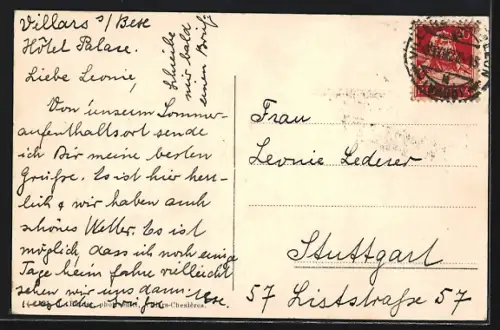 Villars s/Bex
Hôtel Palace.
Liebe Leonie,
Von unserm Sommer-
aufenthaltsort sende
ich Dir meine besten
Grüße. Es ist hier herr-
lich & wir haben auch
schönes Wetter. Es ist
möglich, dass ich noch einige
Tage heim fahre vielleicht
sehen wir uns dann.
Schreibe
mir bald
einen Brief.
Frau
Leonie Lederer
Stuttgart
57 Liststraße 57